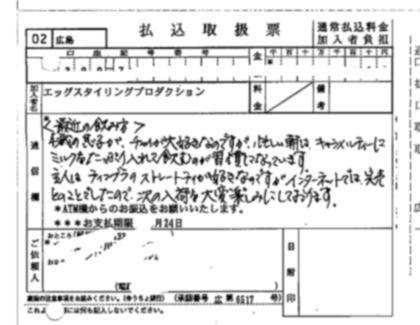 払込取扱票
通常払込料金
加入者負担
02 広島
口座記号番号
金 千百十万千百十円
加入者名 エッグスタイリングプロダクション
料金
備考
<最近の飲み方>
チャイが大好きなのですが、忙しい朝は、キャラメルティーに
ミルクをたっぷり入れて飲むのが習慣になっています
主人は ストレートティが好きなのですがインターネットでは、完売
とのことでしたので、次の入荷を大変楽しみにしております。
通信欄
*ATM機からのお振込をお願いいたします。
***お支払期限 月24日
ご依頼人
おところ
おな
日附印
裏面の注意事項をお読みください。(ゆうちょ銀行) (承認番号 広 第6517 号)
これより には何も記入しないでください。